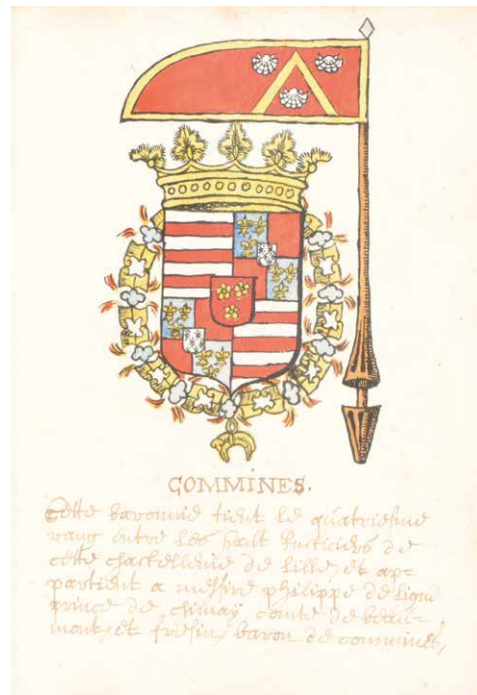 COMMINES.
Cette baronnie tient le quatriesme
rang entre les haut Justiciers de
cette chastellenie de Lille, et ap=
partient a messire philippe de Ligne
prince de chimay, comte de beau
mont, et fresin, baron de commines,